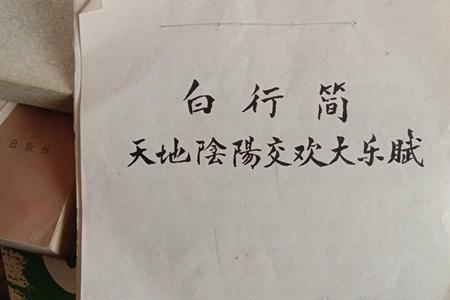 白行简
天地陰陽交欢大乐赋
出版社